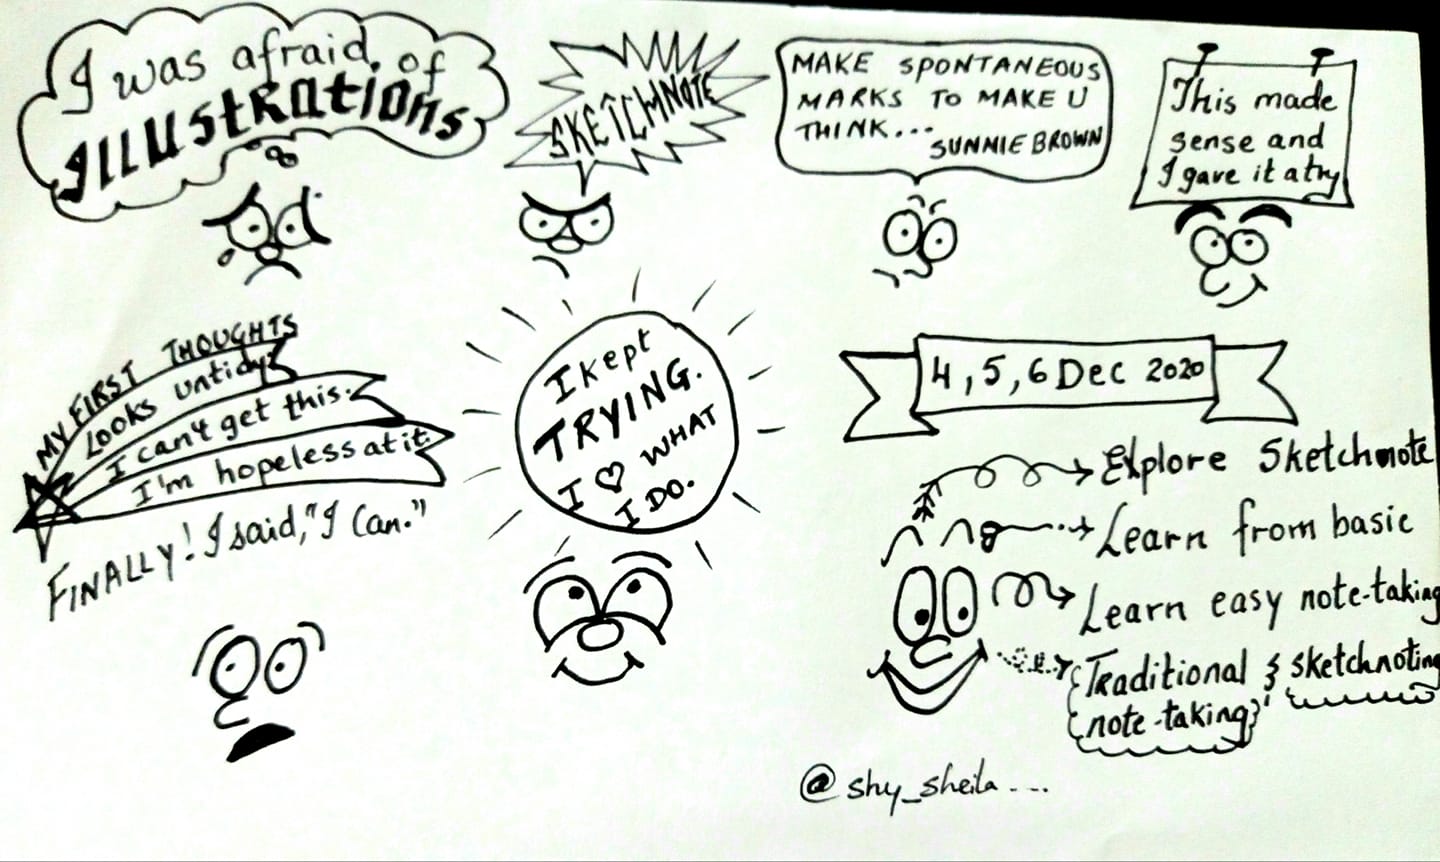 I was afraid of
ILLUStRAtIONS
SKETCHNOTE
MAKE SPONTANEOUS
MARKS TO MAKE U
THINK...
SUNNIE BROWN
This made
sense and
I gave it a try
MY FIRST THOUGHTS
Looks untidy.
I can't get this.
I'm hopeless at it.
FINALLY! I said, "I Can."
I kept
TRYING.
I ♡ WHAT
I DO.
4, 5, 6 Dec 2020
Explore Sketchnote
Learn from basic
Learn easy note-taking
Traditional & sketchnoting
note-taking
@shy_sheila....